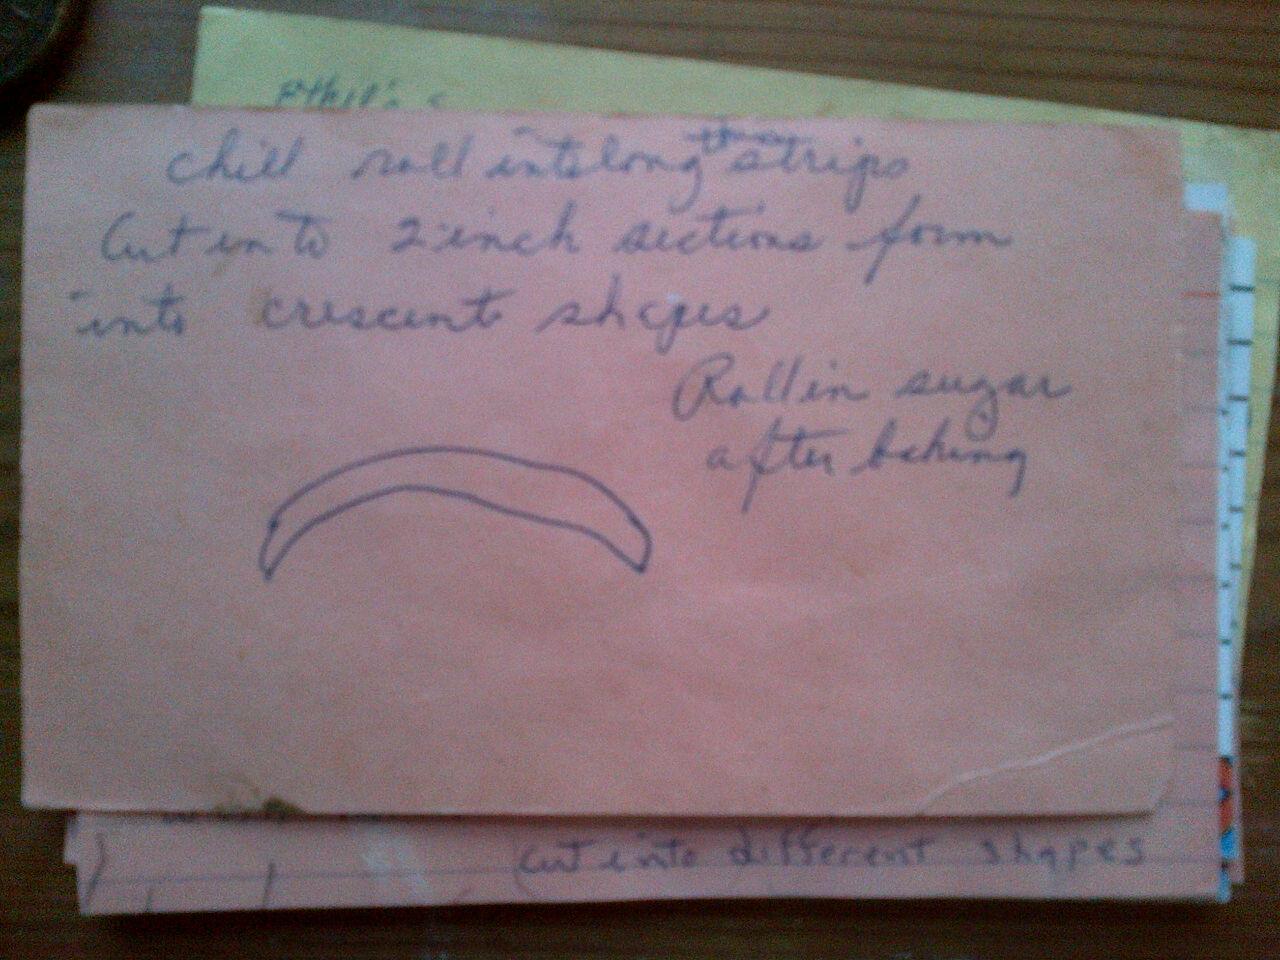 Ethel's
chill roll into long strips
Cut into 2 inch sections form
into crescent shapes
Roll in sugar
after baking
cut into different shapes